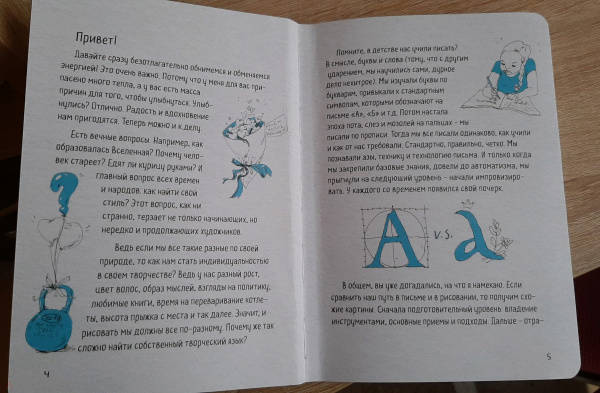 Привет!
Давайте сразу безотлагательно обнимемся и обменяемся
энергией! Это очень важно. Потому что у меня для вас при-
пасено много тепла, а у вас есть масса
причин для того, чтобы улыбнуться. Улыб-
нулись? Отлично. Радость и вдохновение
нам пригодятся. Теперь можно и к делу.
Есть вечные вопросы. Например, как
образовалась Вселенная? Почему чело-
век стареет? Едят ли курицу руками? И
главный вопрос всех времен
и народов: как найти свой
стиль? Этот вопрос, как ни
странно, терзает не только начинающих, но
нередко и продолжающих художников.
Ведь если мы все такие разные по своей
природе, то как нам стать индивидуальностью
в своем творчестве? Ведь у нас разный рост,
цвет волос, образ мыслей, взгляды на политику,
любимые книги, время на переваривание котле-
ты, высота прыжка с места и так далее. Значит, и
рисовать мы должны все по-разному. Почему же так
сложно найти собственный творческий язык?
4
Помните, в детстве нас учили писать?
В смысле, буквы и слова (тому, что с другим
ударением, мы научились сами, дурное
дело нехитрое). Мы изучали буквы по
букварям, привыкали к стандартным
символам, которыми обозначают на
письме «А», «Б» и т.д. Потом настала
эпоха пота, слез и мозолей на пальцах – мы
писали по прописи. Тогда мы все писали одинаково, как учили
и как от нас требовали. Стандартно, правильно, четко. Мы
познавали азы, технику и технологию письма. И только когда
мы закрепили базовые знания, довели до автоматизма, мы
прыгнули на следующий уровень – начали импровизиро-
вать. У каждого со временем появился свой почерк.
А v.s. а
В общем, вы уже догадались, на что я намекаю. Если
сравнить наш путь в письме и в рисовании, то получим схо-
жие картины. Сначала подготовительный уровень: владение
инструментами, основные приемы и подходы. Дальше – отра-
5